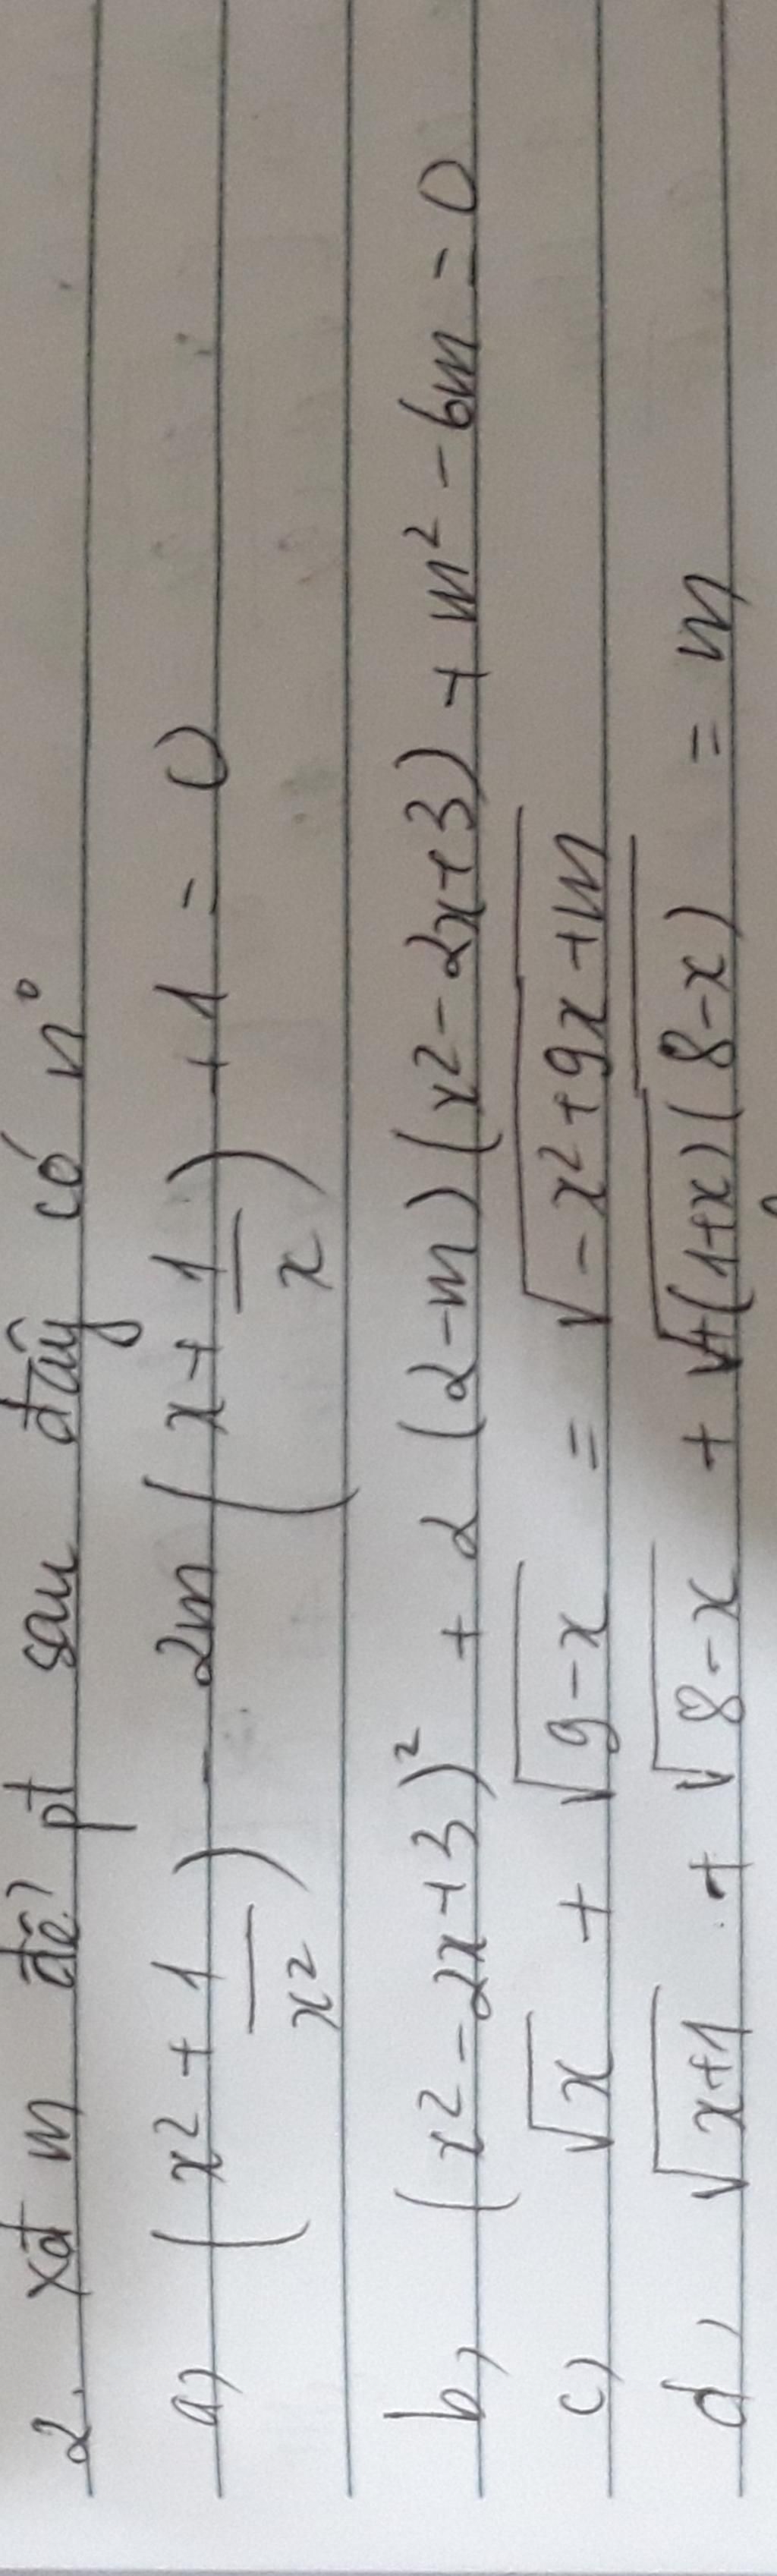 2. xđ m để pt sau đây có n°
a) (x² + 1/x²) - 2m (x + 1/x) + 1 = 0
b) (x² - 2x + 3)² + 2 (2-m) (x² - 2x + 3) + m² - 6m = 0
c) √x + √(9-x) = √(-x² + 9x + m)
d) √(x+1) + √(8-x) + √((1+x)(8-x)) = m